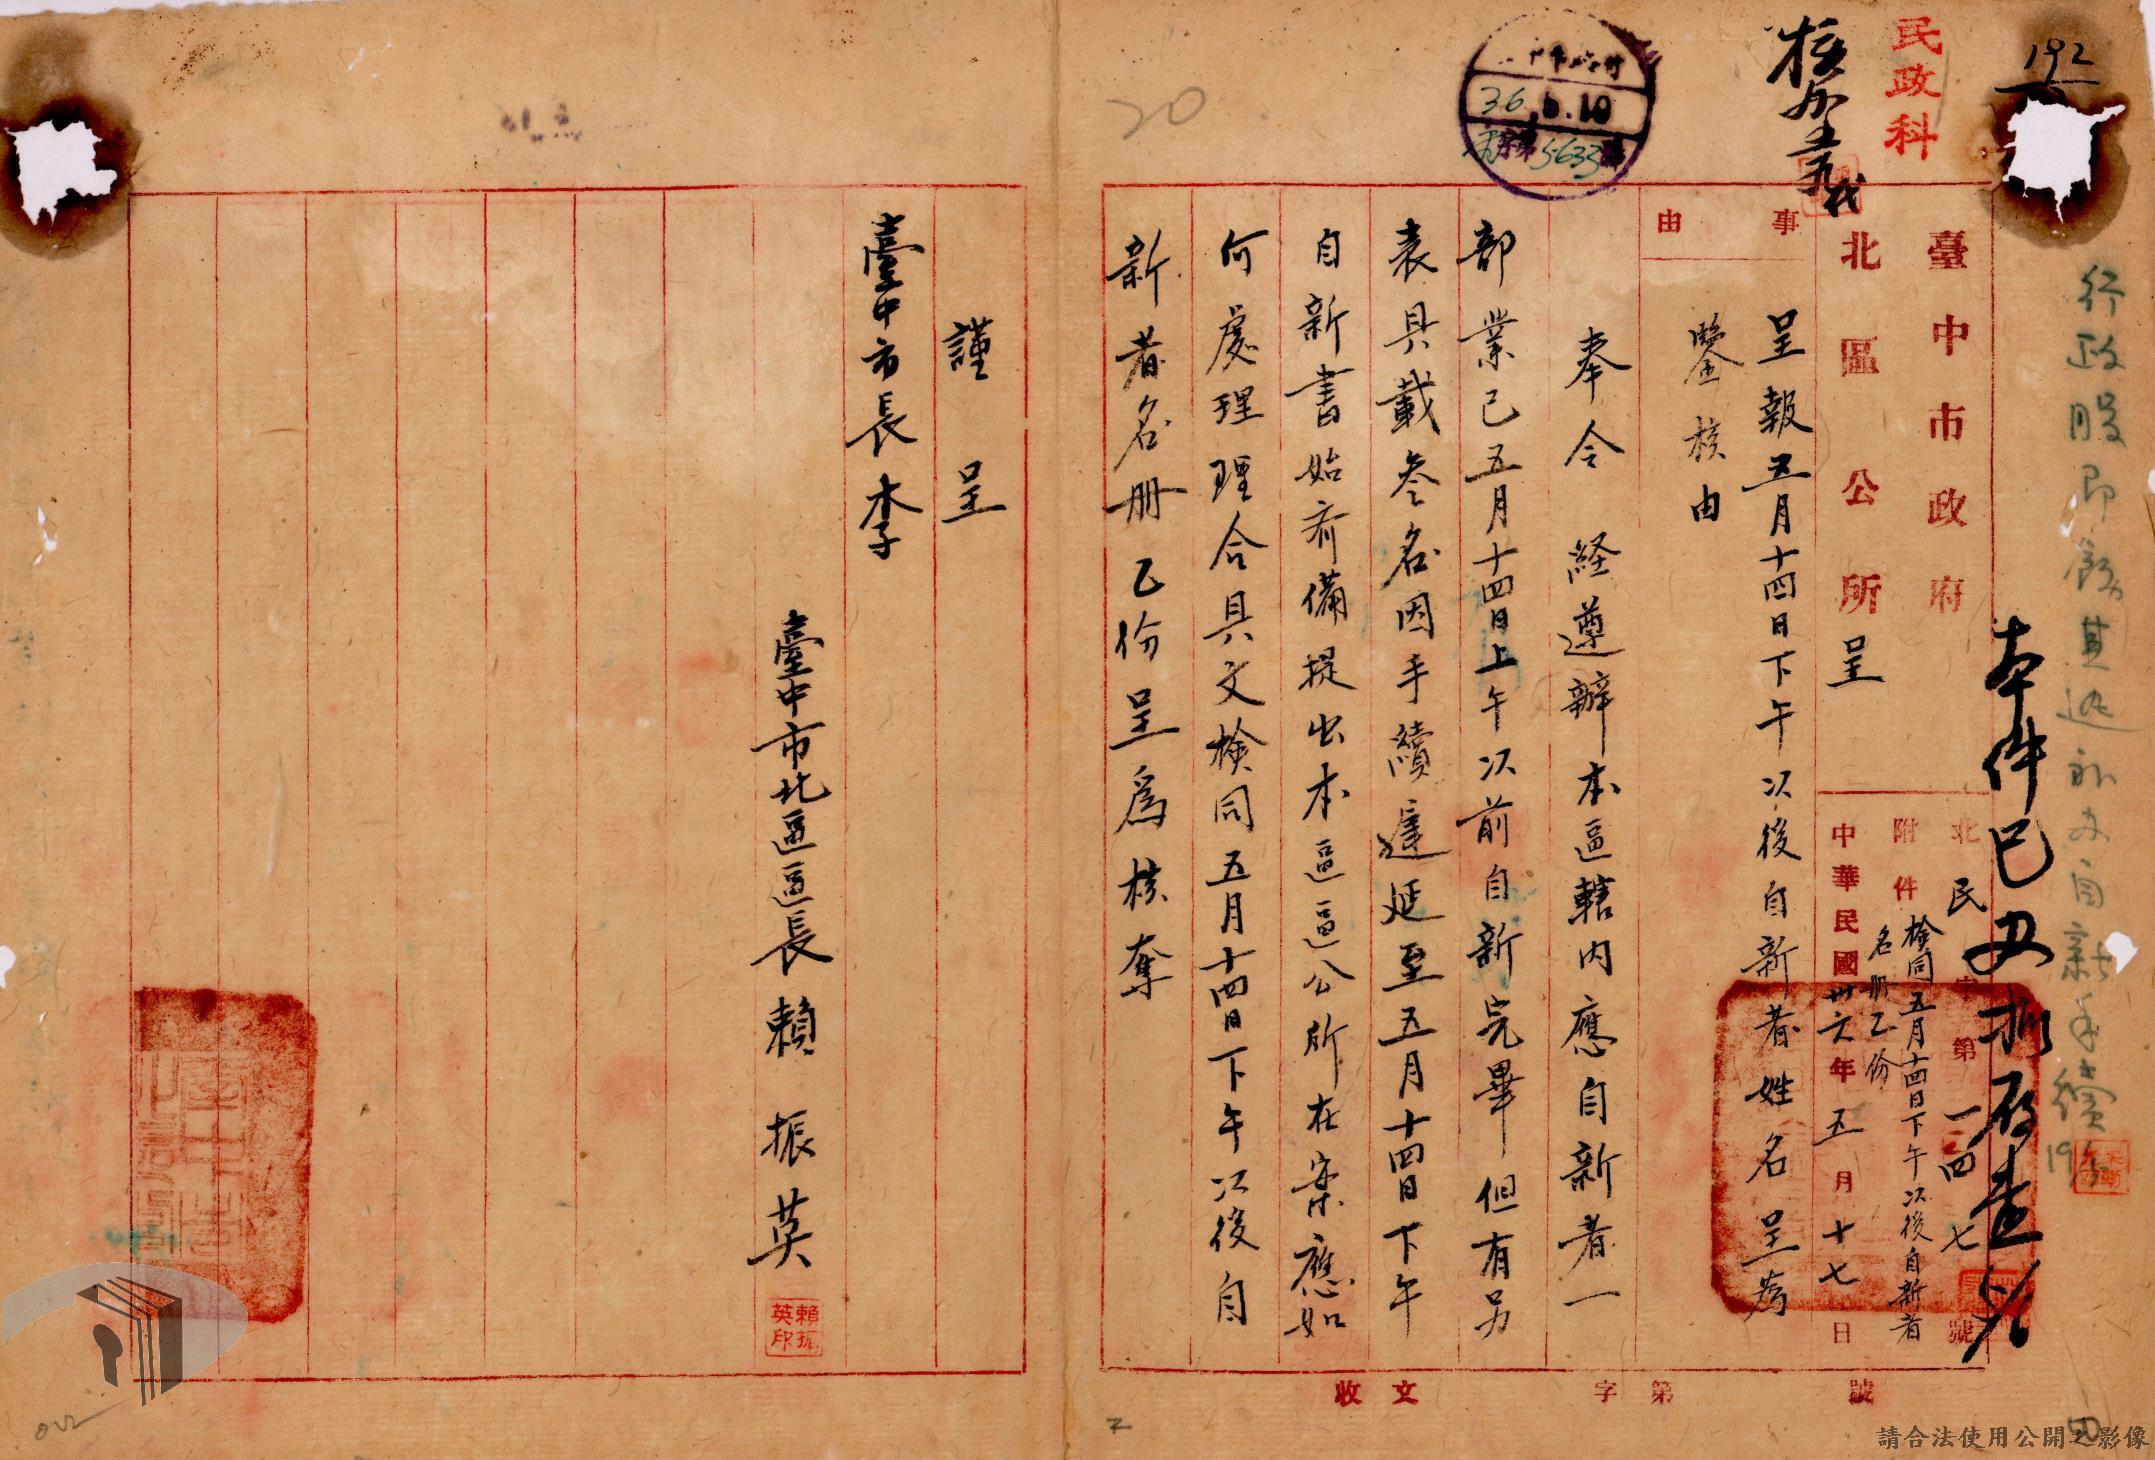 192
民政科
行政股
本件已
臺中市政府
北區公所呈
北民字第一四七號
附件
檢同五月十四日下午以後自新者
名冊乙份
中華民國卅六年五月十七日
事由
呈報五月十四日下午以後自新者姓名呈為
鑒核由
36.5.19
5633
奉令 経遵辦本區轄内應自新者一
部業已五月十四日上午以前自新完畢但有另
表具載叁名因手續遲延至五月十四日下午
自新書始齐備提出本區區公所在案應如
何處理理合具文檢同五月十四日下午以後自
新者名冊乙份呈為核奪
謹呈
臺中市長李
臺中市北區區長賴振英
賴振英印
收文 字第 號
20
2
請合法使用公開之影像